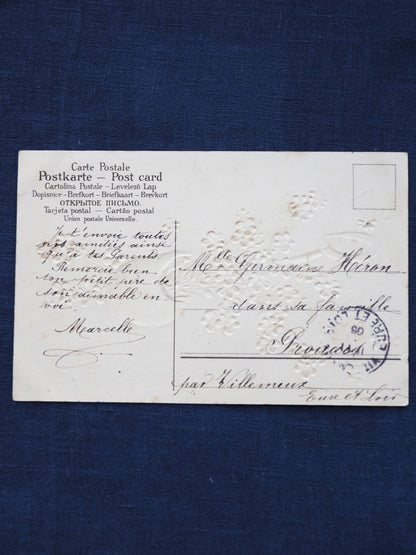 Carte Postale
Postkarte — Post card
Cartolina Postale - Levelező Lap
Dopisnice - Brefkort - Briefkaart - Brevkort
ОТКРЫТОЕ ПИСЬМО.
Tarjeta postal — Cartão postal
Union postale Universelle.
Je t'envoie toutes
nos amitiés ainsi
qu'à tes Parents
Remercie bien
ton petit père de
son aimable en
voi
Marcelle
Mlle Germaine Héron
dans sa famille
par Villemeux
Eure et Loir
EURE ET LOIR
08